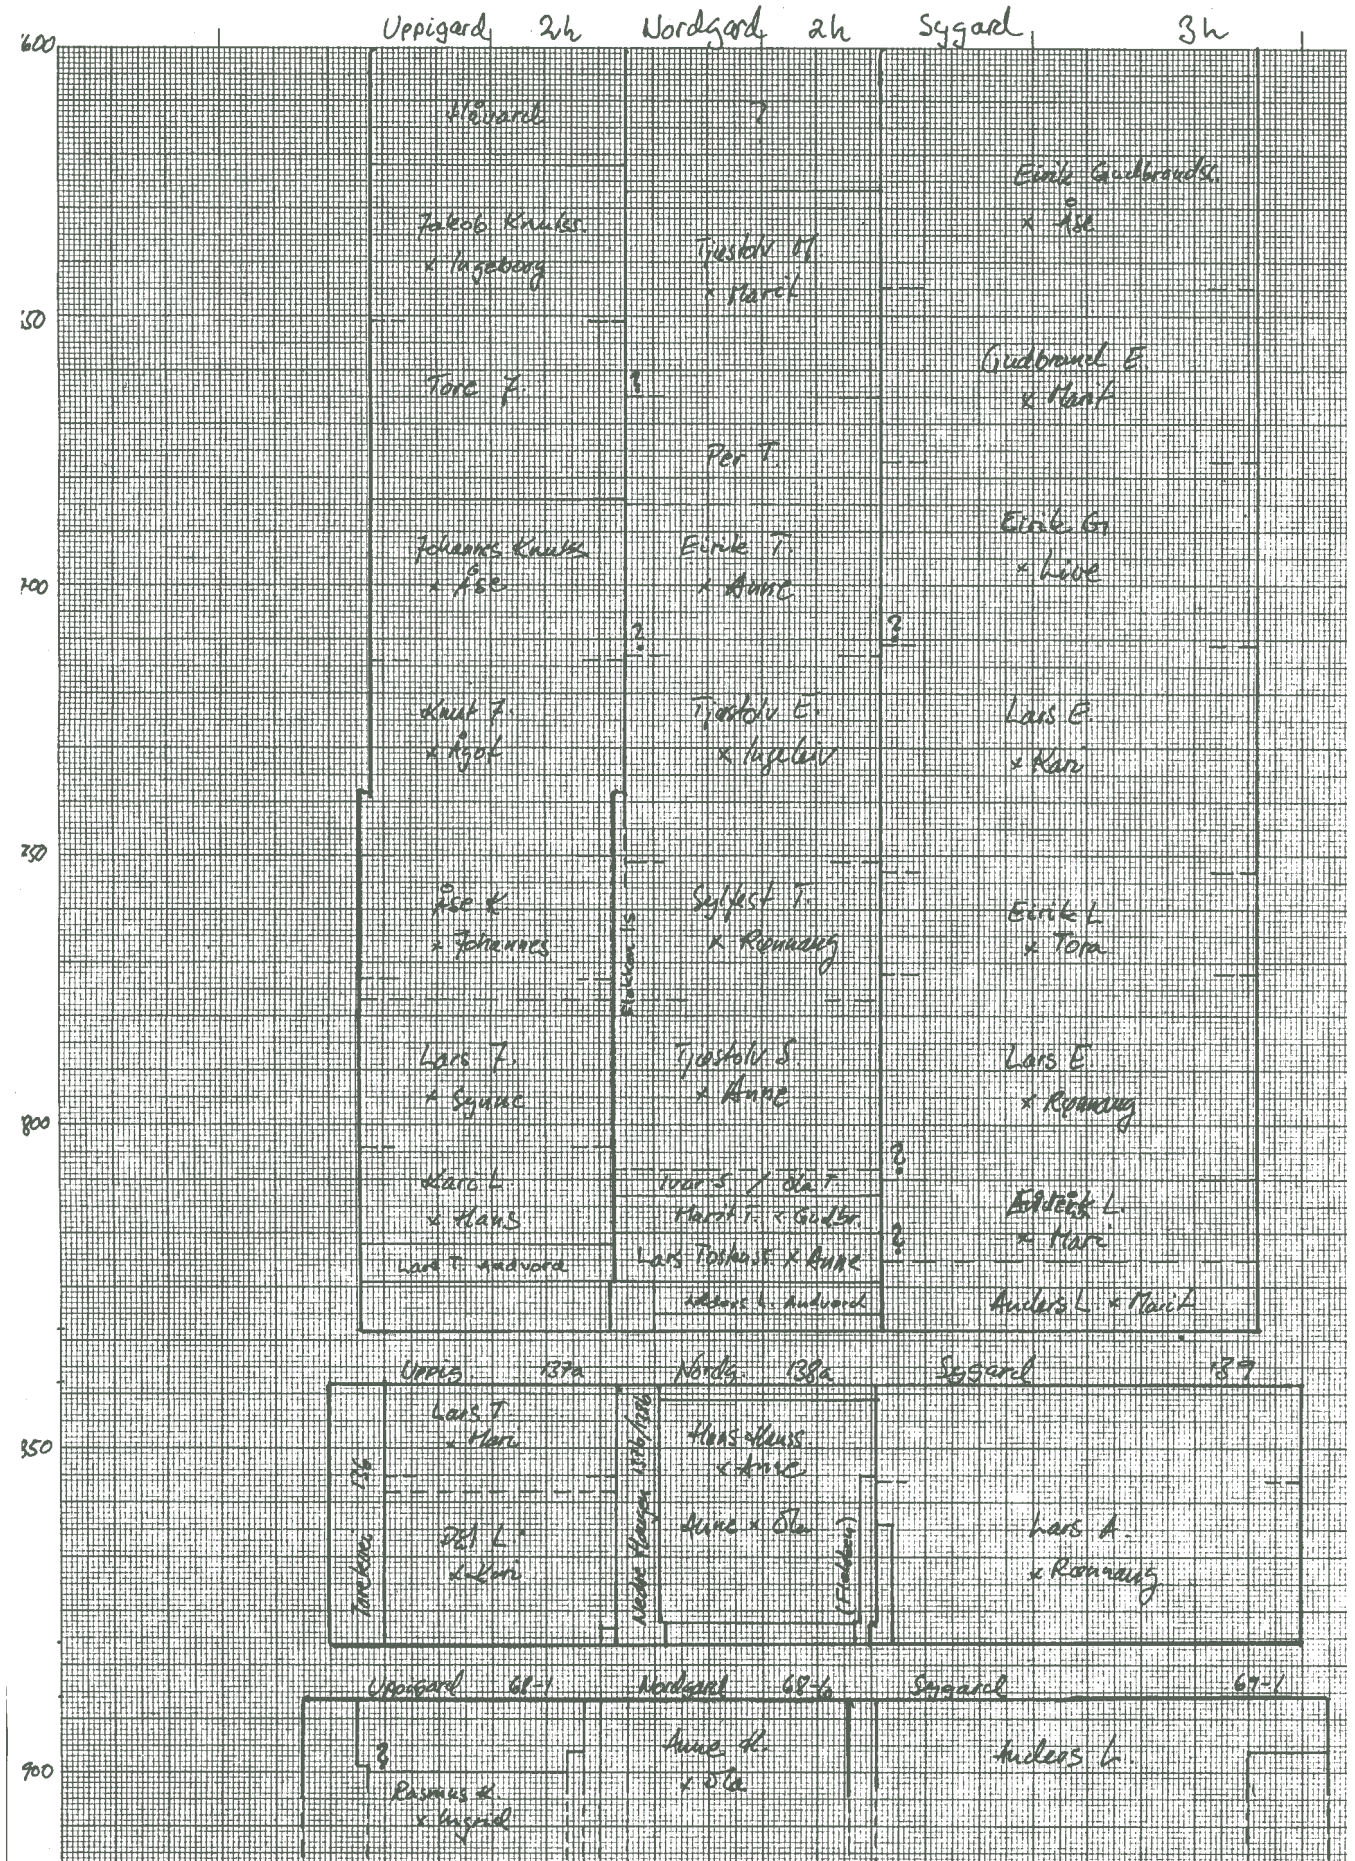 Uppigard 2h Nordgard 2h Sygard 3h
1600
Håvard ?
Eirik Gudbrands.
x Åse
Jakob Knutss.
x Ingeborg
Tjøstolv M.
x Marit
50
Gudbrand E.
x Marit
Tore J.
?
Per T.
Eirik G.
x Live
Johannes Knutss
x Åse
Eirik T.
x Anne
700
? ?
Knut J.
x Ågot
Tjøstolv E.
x Ingeleiv
Lars E.
x Kari
750
Åse K
x Johannes
Sylfest T.
x Rønnaug
Eirik L
x Tora
Lars J.
x Synne
Tjøstolv S.
x Anne
Lars E.
x Rønnaug
800
?
Kari L.
x Hans
Ivar S. / Ola T.
Marit T. x Gudbr.
L.
x Mari
?
Lars T. Andvord
Lars Tostenss. x Anne
Anders L. Andvord
Anders L. x Marit
Uppig. 137a Nordg. 138a Sygard 139
Lars T.
x Mari
Hans Hanss.
x Anne
850
136
Nedre Haugen 137b/138b
L.
x Kari
Anne x Ola
Lars A.
x Rønnaug
Uppigard 68-1 Nordgard 68-6 Sygard 69-1
?
Anne H.
x Ola
Anders L.
900
Rasmus K.
x Ingrid